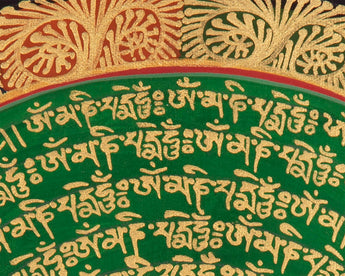 །།ཨོཾ་མ་ཎི་པདྨེ་ཧཱུྃ༔ཨོཾ་མ་ཎི་པདྨེ་ཧཱུྃ༔
ཨོཾ་མ་ཎི་པདྨེ་ཧཱུྃ༔ཨོཾ་མ་ཎི་པདྨེ་ཧཱུྃ༔
ཨོཾ་མ་ཎི་པདྨེ་ཧཱུྃ༔ཨོཾ་མ་ཎི་པདྨེ་ཧཱུྃ༔
ཨོཾ་མ་ཎི་པདྨེ་ཧཱུྃ༔ཨོཾ་མ་ཎི་པདྨེ་ཧཱུྃ༔
ཨོཾ་མ་ཎི་པདྨེ་ཧཱུྃ༔ཨོཾ་མ་ཎི་